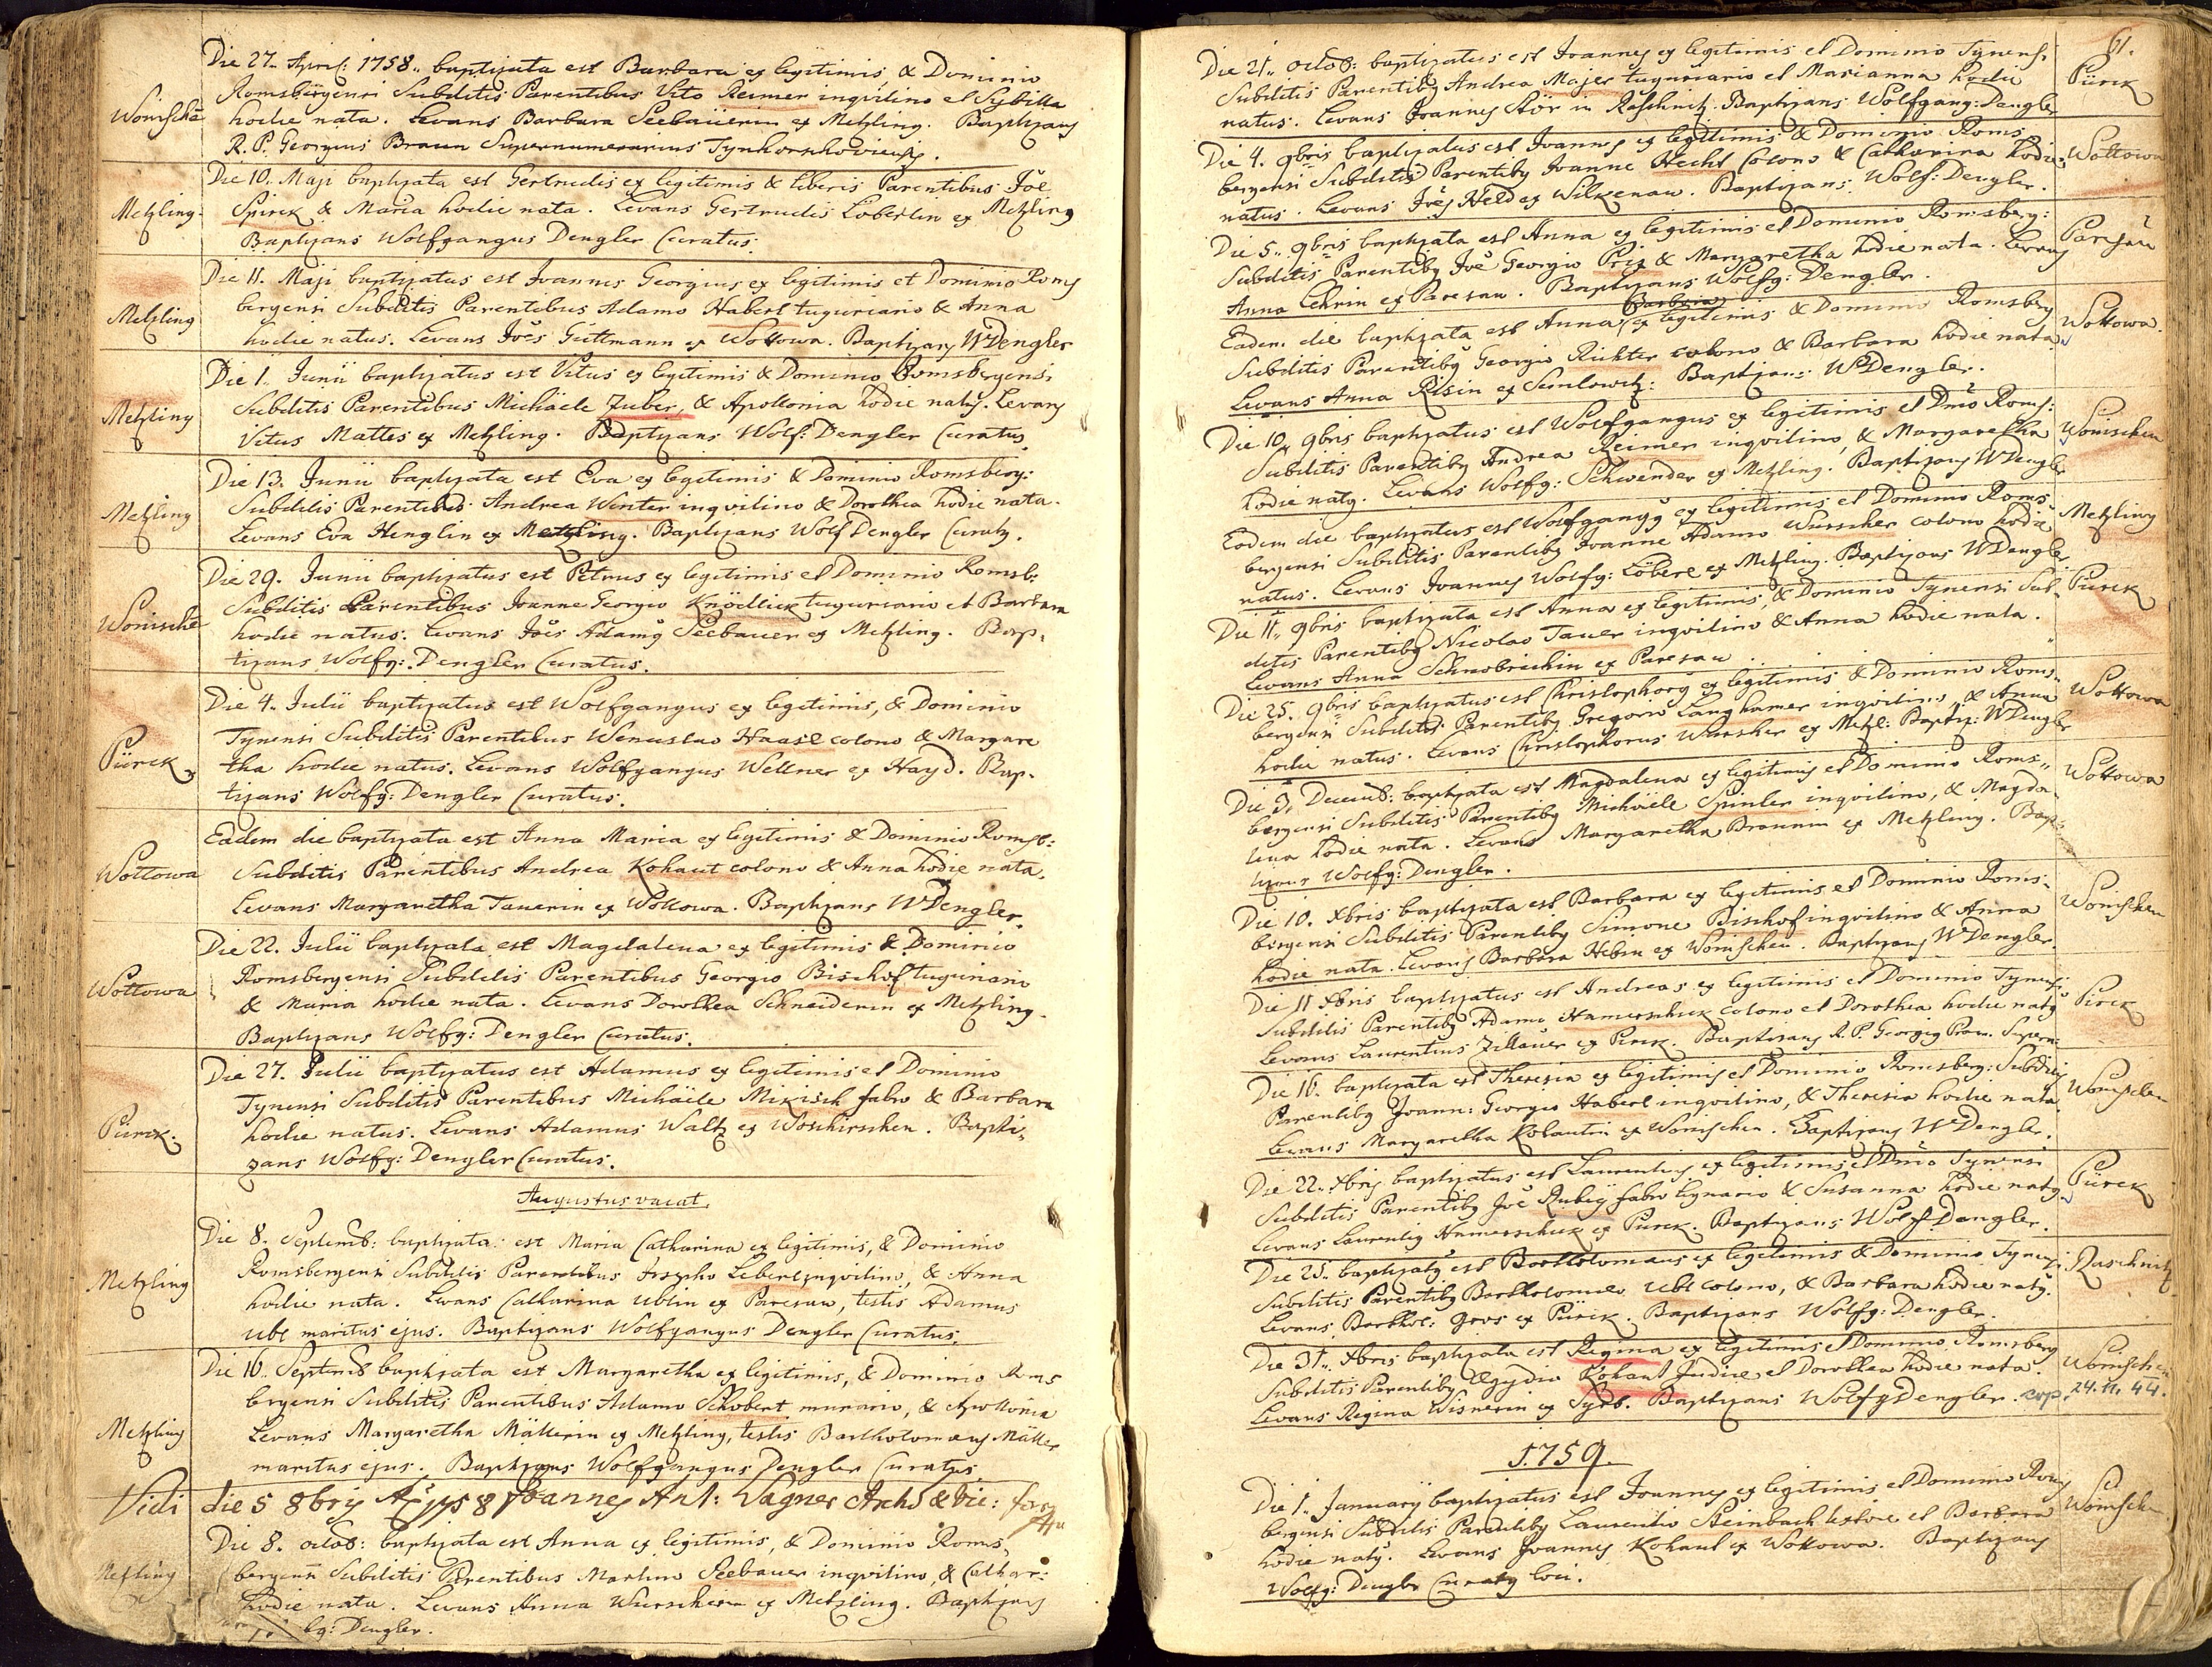 Die 27. April: 1758. baptizata est Barbara ex legitimis, & Dominio
Romsbergensi Subditis Parentibus Vito Reimer inqvilino et Sybilla
Wonische hodie nata. Levans Barbara Seebauerin ex Metzling. Baptizans
R. P. Georgius Braun Supernumerarius Tynhorschoviensis.
Die 10. Maji baptizata est Gertrudis ex legitimis & liberis Parentibus Joe
Metzling. Spirek & Maria hodie nata. Levans Gertrudis Loberlin ex Metzling
Baptizans Wolfgangus Dengler Curatus.
Die 11. Maji baptizatus est Joannes Georgius ex legitimis et Dominio Roms
Metzling bergensi Subditis Parentibus Adamo Haberl tuguriario & Anna
hodie natus. Levans Joes Guttmann ex Wottowa. Baptizans WDengler
Die 1. Junii baptizatus est Vitus ex legitimis & Dominio Romsbergensi
Metzling Subditis Parentibus Michäele Zuber, & Apollonia hodie natus. Levans
Vitus Mattes ex Metzling. Baptizans Wolf: Dengler Curatus.
Die 13. Junii baptizata est Eva ex legitimis & Dominio Romsberg:
Metzling Subditis Parentibus Andrea Winter inqvilino & Dorothea hodie nata.
Levans Eva Henglin ex Metzling. Baptizans Wolf Dengler Curatus.
Die 29. Junii baptizatus est Petrus ex legitimis et Dominio Romsb:
Wonische Subditis Parentibus Joanne Georgio Knödlick tuguriario et Barbara
hodie natus. Levans Joes Adamus Seebauer ex Metzling. Bap-
tizans Wolfg: Dengler Curatus.
Die 4. Julii baptizatus est Wolfgangus ex legitimis, & Dominio
Pürck Tynensi Subditis Parentibus Wenceslao Haasl colono & Margare
tha hodie natus. Levans Wolfgangus Wellner ex Hayd. Bap-
tizans Wolfg: Dengler Curatus.
Eadem die baptizata est Anna Maria ex legitimis & Dominio Romsb:
Wottowa Subditis Parentibus Andrea Kohaut colono & Anna hodie nata.
Levans Margaretha Tauerin ex Wottowa. Baptizans WDengler.
Die 22. Julii baptizata est Magdalena ex legitimis & Dominio
Wottowa Romsbergensi Subditis Parentibus Georgio Bischof tuguriario
& Maria hodie nata. Levans Dorothea Schneiderin ex Metzling.
Baptizans Wolfg: Dengler Curatus.
Die 27. Julii baptizatus est Adamus ex legitimis et Dominio
Tynensi Subditis Parentibus Michäele Mikisch fabro & Barbara
Pürck. hodie natus. Levans Adamus Waltz ex Woschirschen. Bapti-
zans Wolfg: Dengler Curatus.
Augustus vacat.
Die 8. Septemb: baptizata est Maria Catharina ex legitimis, & Dominio
Metzling Romsbergensi Subditis Parentibus Josepho Leberl inqvilino, & Anna
hodie nata. Levans Catharina Ublin ex Paresau, testis Adamus
Ubl maritus ejus. Baptizans Wolfgangus Dengler Curatus.
Die 16. Septemb baptizata est Margaretha ex legitimis, & Dominio Roms
bergensi Subditis Parentibus Adamo Schobert murario, & Apollonia
Metzling Levans Margaretha Mällerin ex Metzling, testis Bartholomaeus Mäller
maritus ejus. Baptizans Wolfgangus Dengler Curatus.
Vidi die 5 8bris A 1758 Joannes Ant: Wagner Archid & Vic: for
Die 8. octob: baptizata est Anna ex legitimis, & Dominio Roms-
Metzling bergensi Subditis Parentibus Martino Seebauer inqvilino, & Cathar:
hodie nata. Levans Anna Wurscherin ex Metzling. Baptizans
lfg: Dengler.
61.
Die 21. octob: baptizatus est Joannes ex legitimis et Dominio Tynens.
Subditis Parentibus Andrea Majer tuguriario et Marianna hodie Pürck
natus. Levans Joannes Stör in Raschnitz. Baptizans Wolfgang: Dengler
Die 4. 9bris baptizatus est Joannes ex legitimis & Dominio Roms- Wottowa
bergensi Subditis Parentibus Joanne Hecht Colono & Catharina hodie
natus. Levans Joes Held ex Wilkenau. Baptizans Wolf: Dengler.
Die 5. 9bris baptizata est Anna ex legitimis et Dominio Romsberg: Paresau
Subditis Parentibus Joe Georgio Priz & Margaretha hodie nata. Levans
Anna Lehrin ex Paresau. Baptizans Wolfg: Dengler.
Eadem die baptizata est Anna Barbara ex legitimis & Dominio Romsberg Wottowa.
Subditis Parentibus Georgio Richter colono & Barbara hodie nata
Levans Anna Risin ex Semlowitz. Baptizans WDengler.
Die 10. 9bris baptizatus est Wolfgangus ex legitimis et Dnio Roms: Wonischen
Subditis Parentibus Andrea Reimer inqvilino, & Margaretha
hodie natus. Levans Wolfg: Schwender ex Metzling. Baptizans WDengler
Eodem die baptizatus est Wolfgangus ex legitimis et Dominio Roms- Metzling
bergensi Subditis Parentibus Joanne Adamo Wurscher colono hodie
natus. Levans Joannes Wolfg: Löberl ex Metzling. Baptizans WDengler
Die 11. 9bris baptizata est Anna ex legitimis, & Dominio Tynensi Sub- Pürck
ditis Parentibus Nicolao Tauer inqvilino & Anna hodie nata.
Levans Anna Schnobrichin ex Paresau
Die 25. 9bris baptizatus est Christophorus ex legitimis & Dominio Roms- Wottowa
bergensi Subditis Parentibus Gregorio Langhamer inqvilino, & Anna
hodie natus. Levans Christophorus Wurscher ex Metzl: Baptiz: WDengler
Die 3. Decemb: baptizata est Magdalena ex legitimis et Dominio Roms- Wottowa
bergensi Subditis Parentibus Michäele Spinler inqvilino, & Magda-
lena hodie nata. Levans Margaretha Braunin ex Metzling. Bap-
tizans Wolfg: Dengler.
Die 10. Xbris baptizata est Barbara ex legitimis et Dominio Roms- Wonischen
bergensi Subditis Parentibus Simone Bischof inqvilino & Anna
hodie nata. Levans Barbara Hebin ex Wonischen. Baptizans WDengler.
Die 11 Xbris baptizatus est Andreas ex legitimis et Dominio Tynensi Pirck
Subditis Parentibus Adamo Hamerschick colono et Dorothea hodie natus
Levans Laurentius Zillauer ex Pirck. Baptizans R. P. Georgius Praun. Supern:
Die 16. baptizata est Theresia ex legitimis et Dominio Romsberg: Subditis Wonischen
Parentibus Joann: Georgio Haberl inqvilino, & Theresia hodie nata
Levans Margaretha Kohautin ex Wonischen. Baptizans WDengler.
Die 22. Xbris baptizatus est Laurentius ex legitimis et Dnio Tynensi Pürck
Subditis Parentibus Joe Rubey fabro lignario & Susanna hodie natus
Levans Laurentius Hamerschick ex Pürck. Baptizans Wolf Dengler.
Die 25. baptizatus est Bartholomaus ex legitimis & Dominio Tynensi Raschnitz
Subditis Parentibus Bartholomaeo Ubl colono, & Barbara hodie natus.
Levans Barthol: Gros ex Pürck. Baptizans Wolfg: Dengler.
Die 31. Xbris baptizata est Regina ex legitimis et Dominio Romsberg Wonischen
Subditis Parentibus Aegydio Kohaut Judice et Dorothea hodie nata
Levans Regina Wisnerin ex Syrb. Baptizans WolfgDengler. cop. 24. 11. 44.
1759.
Die 1. Januarii baptizatus est Joannes ex legitimis et Dominio Roms Wonischen
bergensi Subditis Parentibus Laurentio Steinbach textore et Barbara
hodie natus. Levans Joannes Kohaut ex Wottowa. Baptizans
Wolfg: Dengler Curatus loci.